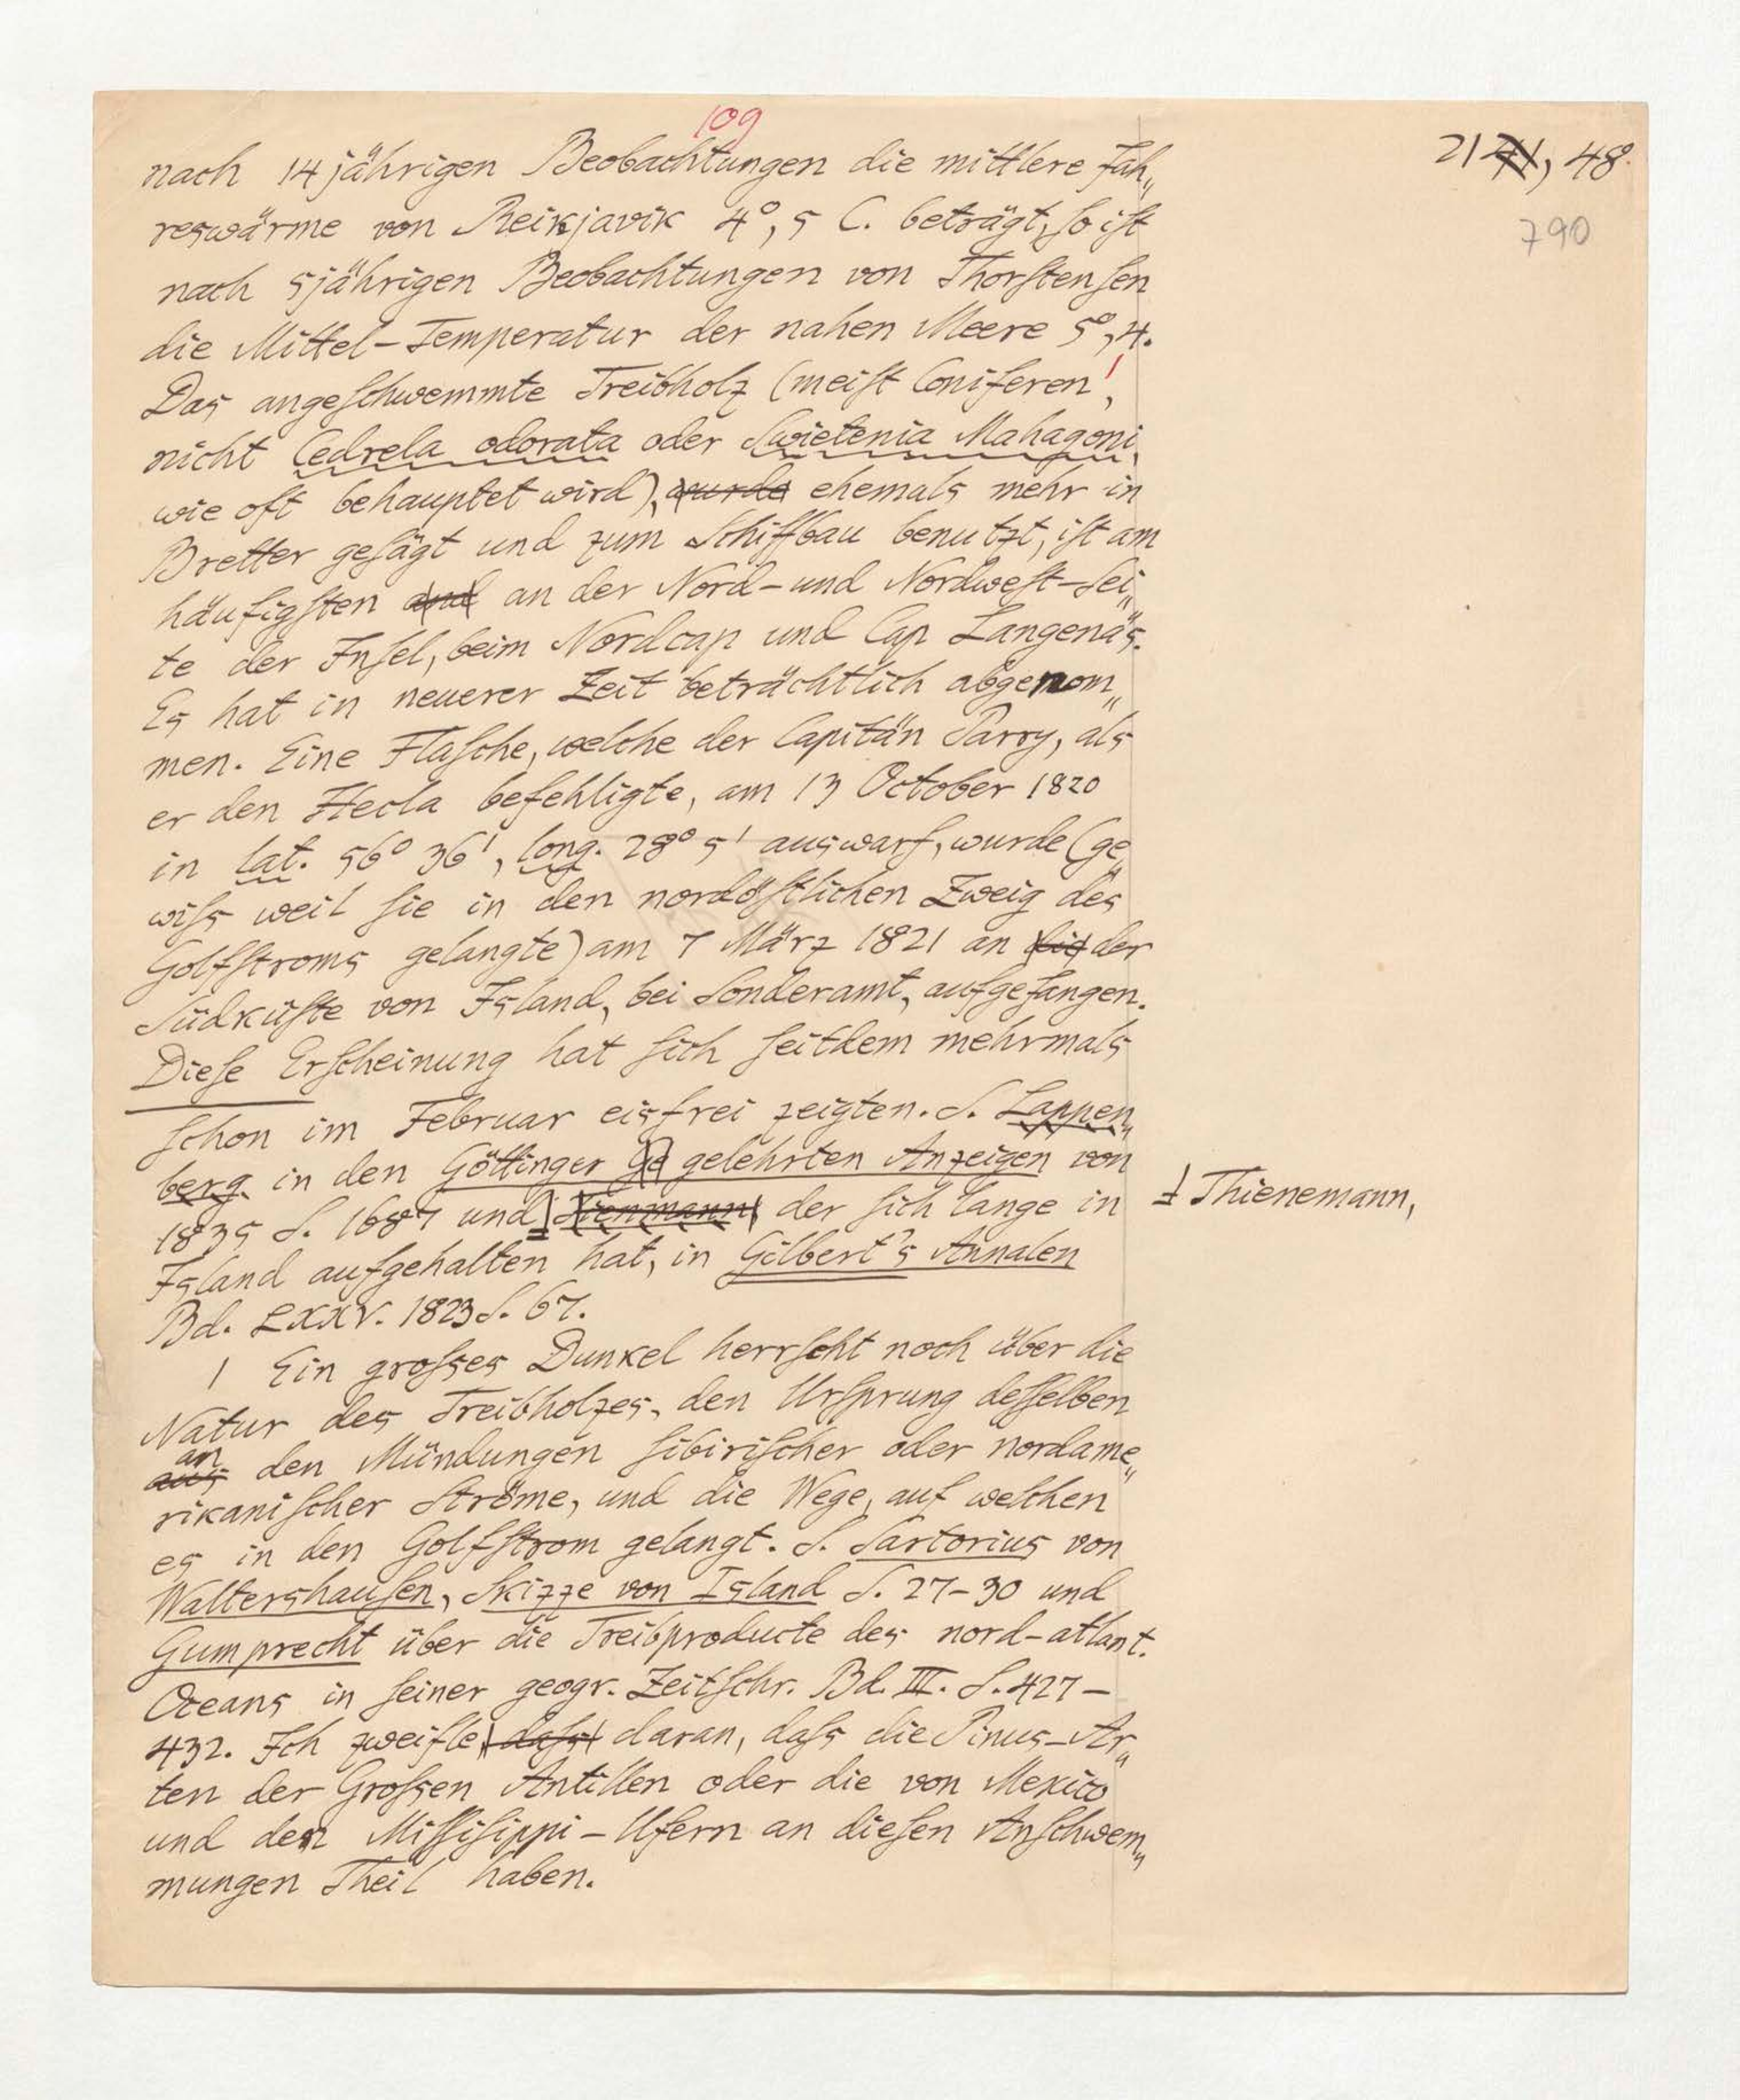 109
2171, 48.
790
nach 14jährigen Beobachtungen die mittlere Jah„
reswärme von Reikjavik 4°, 5 C. beträgt, so ist
nach 5jährigen Beobachtungen von Thorstensen
die Mittel-Temperatur der nahen Meere 5°, 4.
Das angeschwemmte Treibholz (meist Coniferen,
nicht Cedrela odorata oder Swietenia Mahagoni,
wie oft behauptet wird), wurde ehemals mehr in
Bretter gesägt und zum Schiffbau benutzt, ist am
häufigsten und an der Nord- und Nordwest-Sei„
te der Insel, beim Nordcap und Cap Langenäs.
Es hat in neuerer Zeit beträchtlich abgenom„
men. Eine Flasche, welche der Capitän Parry, als
er den Hecla befehligte, am 13 October 1820
in lat. 56° 36', long. 28° 5' auswarf, wurde (ge„
wiss weil sie in den nordöstlichen Zweig des
Golfstroms gelangte) am 7 März 1821 an die der
Südküste von Island, bei Sonderamt, aufgefangen.
Diese Erscheinung hat sich seitdem mehrmals
schon im Februar eisfrei zeigten. S. Lappen„
berg in den Göttinger Ge gelehrten Anzeigen von
1835 S. 1687 und Tienmann der sich lange in
Thienemann,
Island aufgehalten hat, in Gilbert's Annalen
Bd. LXXV. 1823 S. 67.
1 Ein grosses Dunkel herrscht noch über die
Natur des Treibholzes, den Ursprung desselben
an
aus den Mündungen sibirischer oder nordame„
rikanischer Ströme, und die Wege, auf welchen
es in den Golfstrom gelangt. S. Sartorius von
Waltershausen, Skizze von Island S. 27-30 und
Gumprecht über die Treibproducte des nord-atlant.
Oceans in seiner geogr. Zeitschr. Bd. III. S. 427-
432. Ich zweifle dass daran, dass die Pinus-Ar„
ten der Grossen Antillen oder die von Mexico
und den Missisippi-Ufern an diesen Anschwem„
mungen Theil haben.